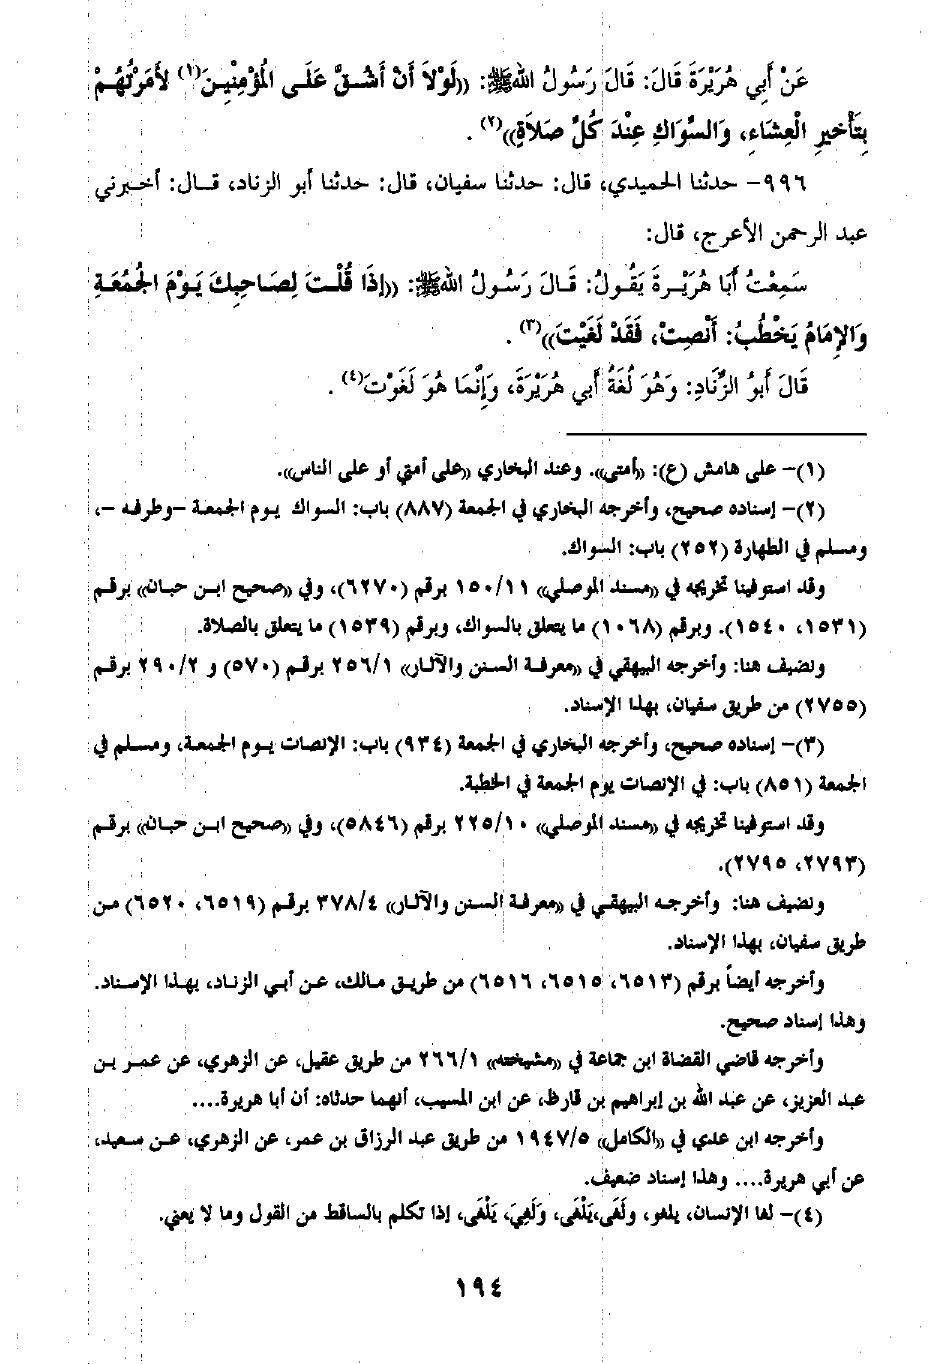 عَنْ أَبِي هُرَيْرَةَ قَالَ: قَالَ رَسُولُ اللهِ ﷺ: ((لَوْلاَ أَنْ أَشُقَّ عَلَى الْمُؤْمِنِينَ(١) لأَمَرْتُهُمْ
بِتَأْخيرِ الْعِشَاءِ، وَالسِّوَاكِ عِنْدَ كُلِّ صَلاَةٍ))(٢) .
٩٩٦- حدثنا الحميدي، قال: حدثنا سفيان، قال: حدثنا أبو الزناد، قال: أخبرني
عبد الرحمن الأعرج، قال:
سَمِعْتُ أَبَا هُرَيْرةَ يَقُولُ: قَالَ رَسُولُ اللهِ ﷺ: ((إِذَا قُلْتَ لِصَاحِبِكَ يَوْمَ الْجُمُعَةِ
وَالإِمَامُ يَخْطُبُ: أَنْصِتْ، فَقَدْ لَغَيْتَ))(٣) .
قَالَ أَبوُ الزِّنَادِ: وَهُوَ لُغَةُ أَبي هُرَيْرَةَ، وَإِنَّمَا هُوَ لَغَوْتَ(٤) .
(١)- على هامش (ع): ((أمتى)). وعند البخاري ((على أمتي أو على الناس)).
(٢)- إسناده صحيح، وأخرجه البخاري في الجمعة (٨٨٧) باب: السواك يوم الجمعة -وطرفه -،
ومسلم في الطهارة (٢٥٢) باب: السواك.
وقد استوفينا تخريجه في ((مسند الموصلي)) ١٥٠/١١ برقم (٦٢٧٠)، وفي ((صحيح ابن حبان)) برقم
(١٥٣١، ١٥٤٠). وبرقم (١٠٦٨) ما يتعلق بالسواك، وبرقم (١٥٣٩) ما يتعلق بالصلاة.
ونضيف هنا: وأخرجه البيهقي في ((معرفة السنن والآثار)) ٢٥٦/١ برقم (٥٧٠) و ٢٩٠/٢ برقم
(٢٧٥٥) من طريق سفيان، بهذا الإسناد.
(٣)- إسناده صحيح، وأخرجه البخاري في الجمعة (٩٣٤) باب: الإنصات يوم الجمعة، ومسلم في
الجمعة (٨٥١) باب: في الإنصات يوم الجمعة في الخطبة.
وقد استوفينا تخريجه في ((مسند الموصلي)) ٢٢٥/١٠ برقم (٥٨٤٦)، وفي ((صحيح ابن حبان)) برقم
(٢٧٩٣، ٢٧٩٥).
ونضيف هنا: وأخرجه البيهقي في ((معرفة السنن والآثار)) ٣٧٨/٤ برقم (٦٥١٩، ٦٥٢٠) من
طريق سفيان، بهذا الإسناد.
وأخرجه أيضاً برقم (٦٥١٣، ٦٥١٥، ٦٥١٦) من طريق مالك، عن أبي الزناد، بهذا الإسناد.
وهذا إسناد صحيح.
وأخرجه قاضي القضاة ابن جماعة في ((مشيخته)) ٢٦٦/١ من طريق عقيل، عن الزهري، عن عمر بن
عبد العزيز، عن عبد الله بن إبراهيم بن قارظ، عن ابن المسيب، أنهما حدثاه: أن أبا هريرة....
وأخرجه ابن عدي في ((الكامل)) ١٩٤٧/٥ من طريق عبد الرزاق بن عمر، عن الزهري، عن سعيد،
عن أبي هريرة.... وهذا إسناد ضعيف.
(٤)- لغا الإنسان، يلغو، ولَغَى،يَلْغَى، وَلَغِيَ، يَلْغَى، إذا تكلم بالساقط من القول وما لا يعني.
١٩٤